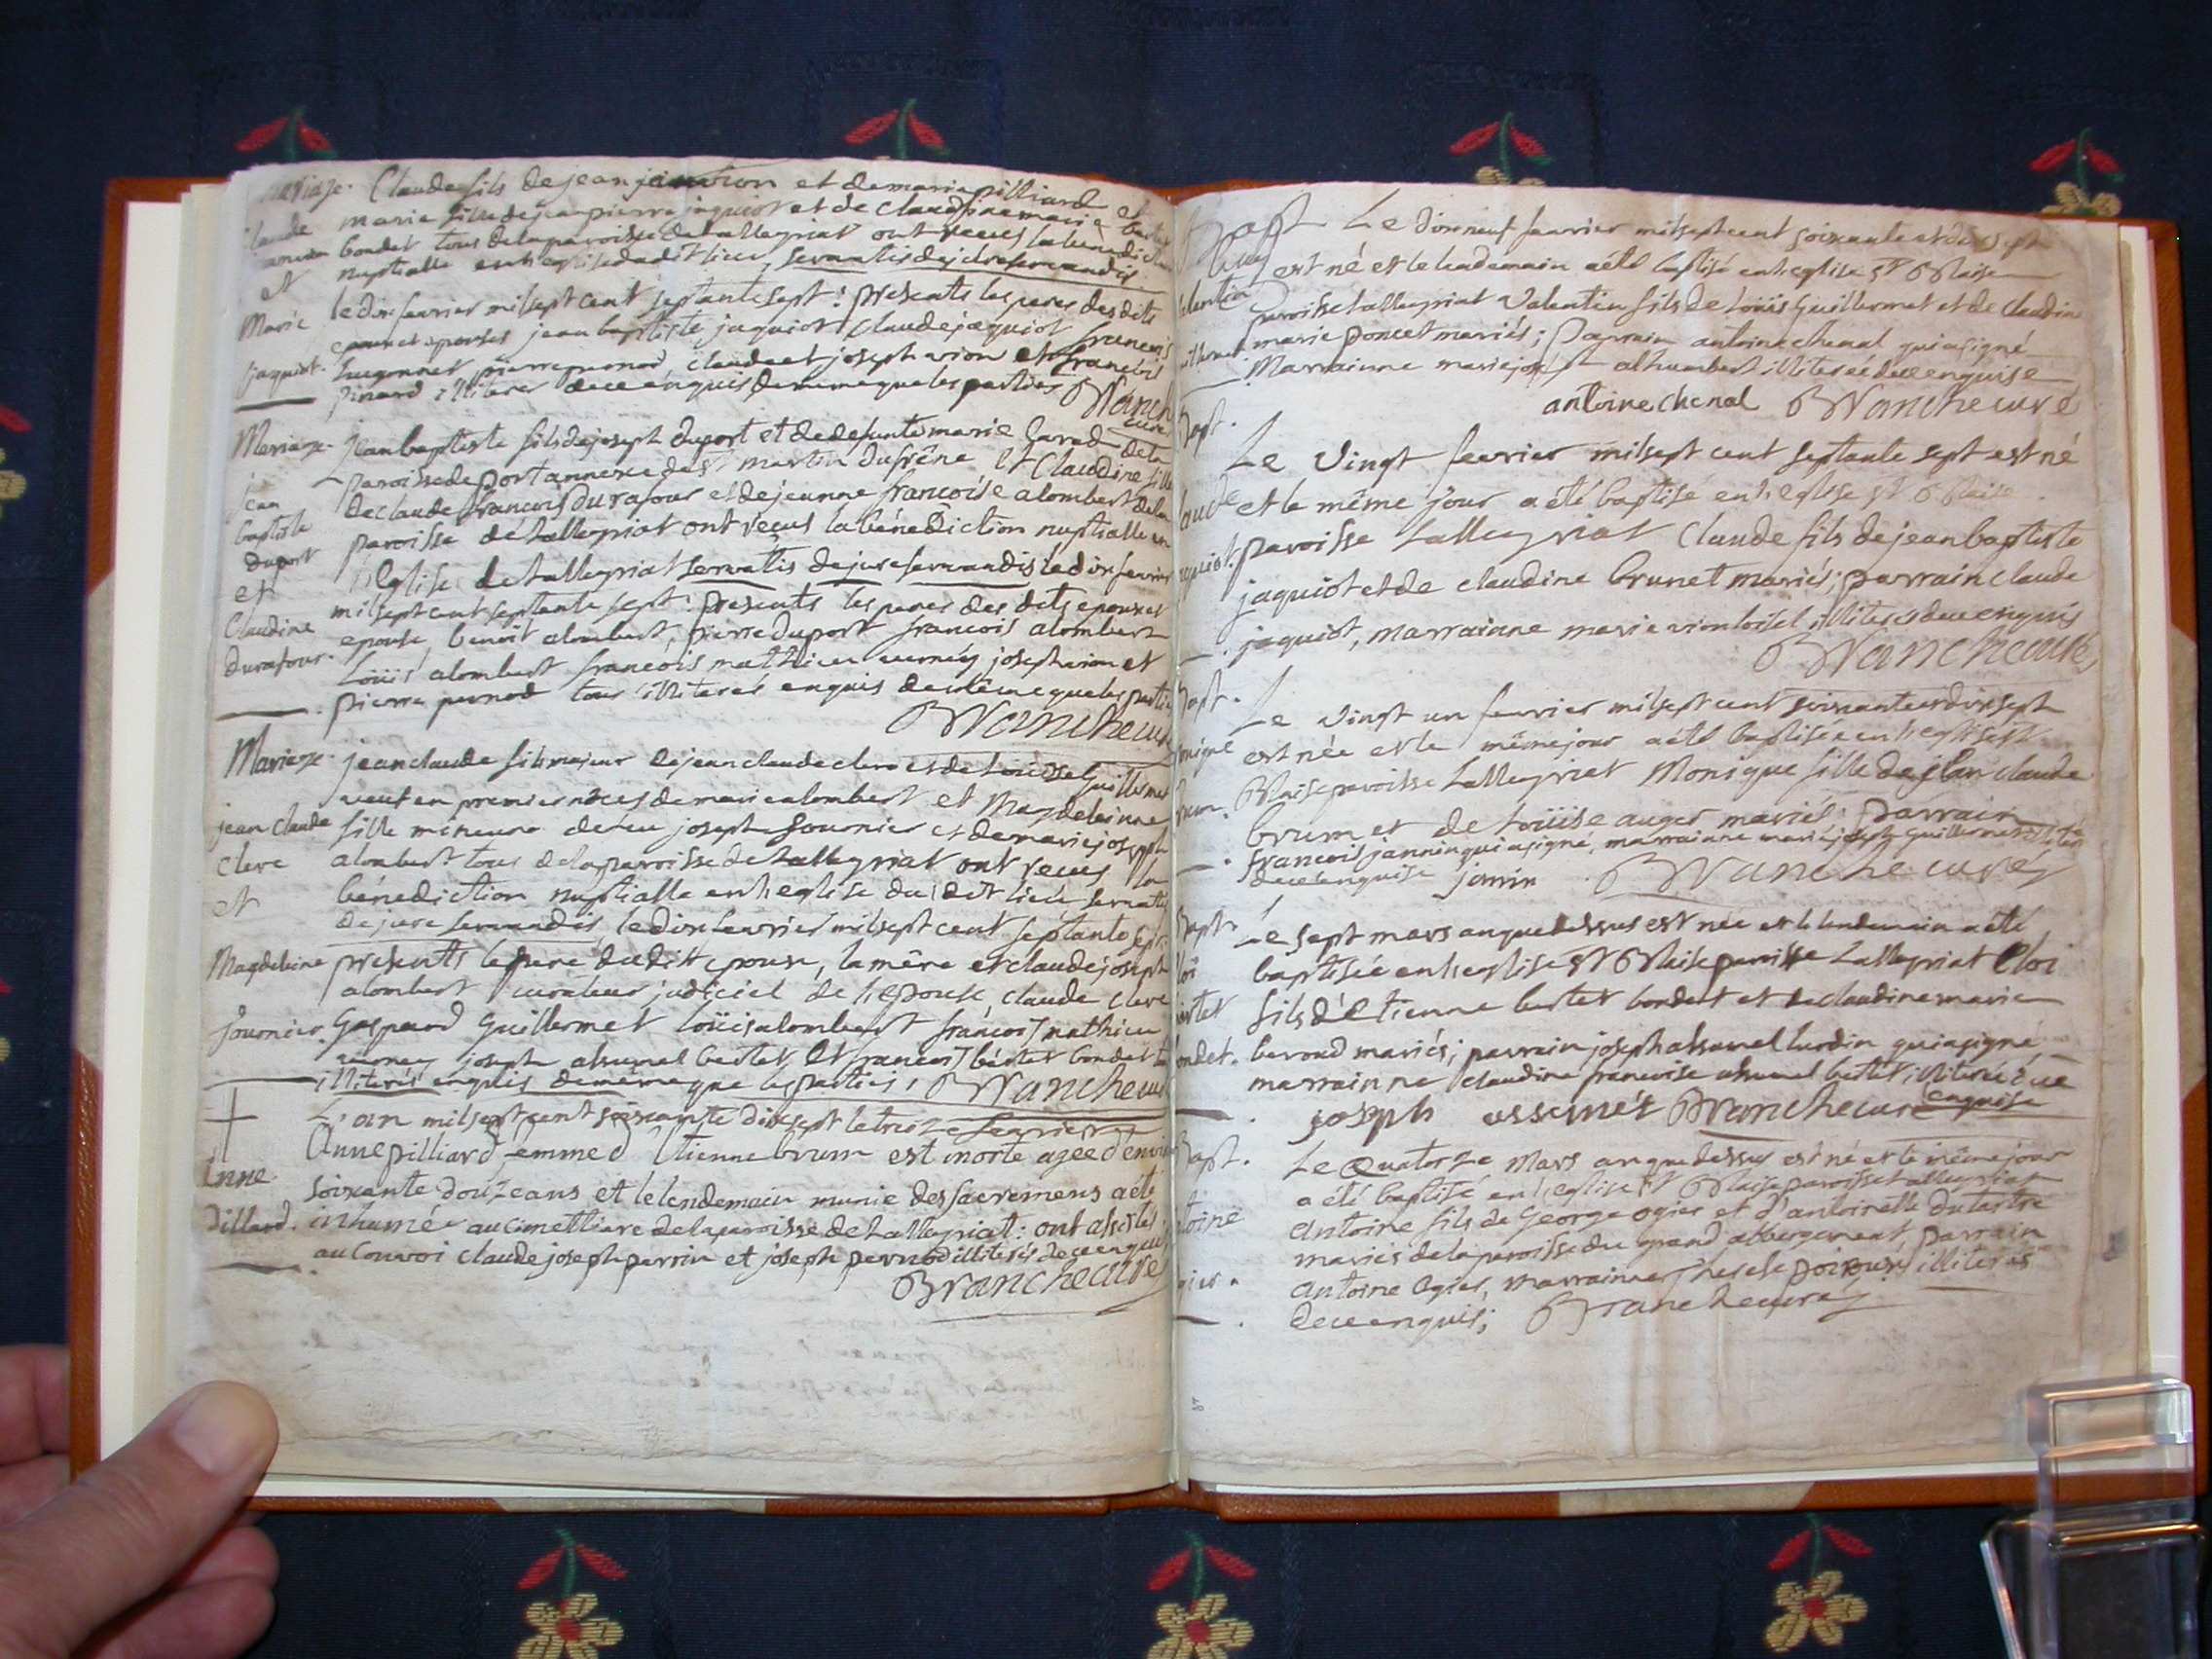 Mariage. Claude fils de jean janvion et de marie pilliard et
Claude marie fille de jean pierre jaquiot et de claudine marie bertet
bondet tous de la paroisse de tallegriat ont reçus la benediction
et nuptialle en l'eglise dudit lieu, servatis de jure servandis.
Marie le dix fevrier mil sept cent septante sept: presents les peres des dits
epoux et epouses jean baptiste jaquiot claude jaquiot francois
jaquiot. pierre pernod claude et joseph vion et francois
pinard illiterés de ce enquis de meme que les parties Branche
curé
Mariage. jean baptiste fils de joseph duport et de defunte marie de la
jean paroisse de port annexe de st martin du frêne et Claudine fille
baptiste de claude francois durafour et de jeanne francoise alombert de la
duport paroisse de tallegriat ont reçus la bénédiction nuptialle en
et l'Eglise de tallegriat servatis de jure servandis le dix fevrier
Claudine mil sept cent septante sept: presents les peres des dits epoux et
durafour. epouse, benoit alombert, pierre duport francois alombert
Loüis alombert francois mathieu joseph vion et
pierre pernod tous illiterés enquis de même que les parties
Branche curé
Mariage. jean claude fils majeur de jean claude clere et de Loüise Guillermet
veuf en premieres nôces de marie alombert et Magdeleinne
jean Claude fille mineure de feu joseph fournier et de marie joseph
Clere alombert tous de la paroisse de tallegriat ont reçus la
et bénediction nuptialle en l'eglise du dit lieu servatis
de jure servandis le dix fevrier mil sept cent septante sept
Magdeleine presents le pere dudit epoux, la mére et claude joseph
alombert curateur judiciel de l'epouse, claude clere
fournier. Gaspard Guillermet Loüis alombert françois mathieu
joseph bertet et francois bertet bondet tous
illiterés enquis de même que les parties, Branche curé
L'an mil sept cent soixante dix sept le treize fevrier
Anne pilliard femme d'Etienne brum est morte agée d'environ
Anne soixante douze ans et le lendemain munie des sacremens a été
pillard. inhumée au cimettiere de la paroisse de tallegriat: ont assistés
au Convoi claude joseph perrin et joseph pernod illiterés de ce enquis
Branche curé
Bapt Le dix neuf fevrier mil sept cent soixante et dix sept
est né et le lendemain a été baptisé en l'eglise st Blaise
Valentin paroisse tallegriat Valentin fils de Loüis Guillermet et de Claudine
marie poncet mariés; Parrain antoine chenal qui a signé
Marrainne marie joseph alhumbert illiterée de ce enquise
antoine chenal Branche curé
Bapt. Le Vingt fevrier mil sept cent septante sept est né
claude et le même jour a été baptisé en l'eglise st Blaise
jaquiot. paroisse tallegriat Claude fils de jean baptiste
jaquiot et de claudine brunet mariés; parrain claude
jaquiot, marrainne marie vion loisel illiterés de ce enquis
Branche curé
Bapt. Le vingt un fevrier mil sept cent soixante et dix sept
monique est née et le même jour a été baptisée en l'eglise st
Blaise paroisse tallegriat Monique fille de jean claude
brum. brum et de Loüise auger mariés: parrain
francois jannin qui a signé, marrainne marie joseph guillermet illiterée
de ce enquise janin Branche curé
Bapt. Le sept mars an que dessus est née et le lendemain a été
Eloi baptisée en l'eglise st Blaise paroisse tallegriat Eloi
bertet fils d'Etienne bertet bondet et de claudine marie
bondet. mariés; parrain joseph qui a signé
marrainne claudine francoise bertet illiterée de ce
joseph Branche curé enquise
Bapt. Le Quatorze Mars an que dessus est né et le même jour
a été baptisé en l'eglise st Blaise paroisse tallegriat
antoine Antoine fils de George ogier et d'antoinette dutartre
mariés de la paroisse du grand abbergement, parrain
ogier. Antoine Ogier, marrainne illiterés
de ce enquis; Branche curé